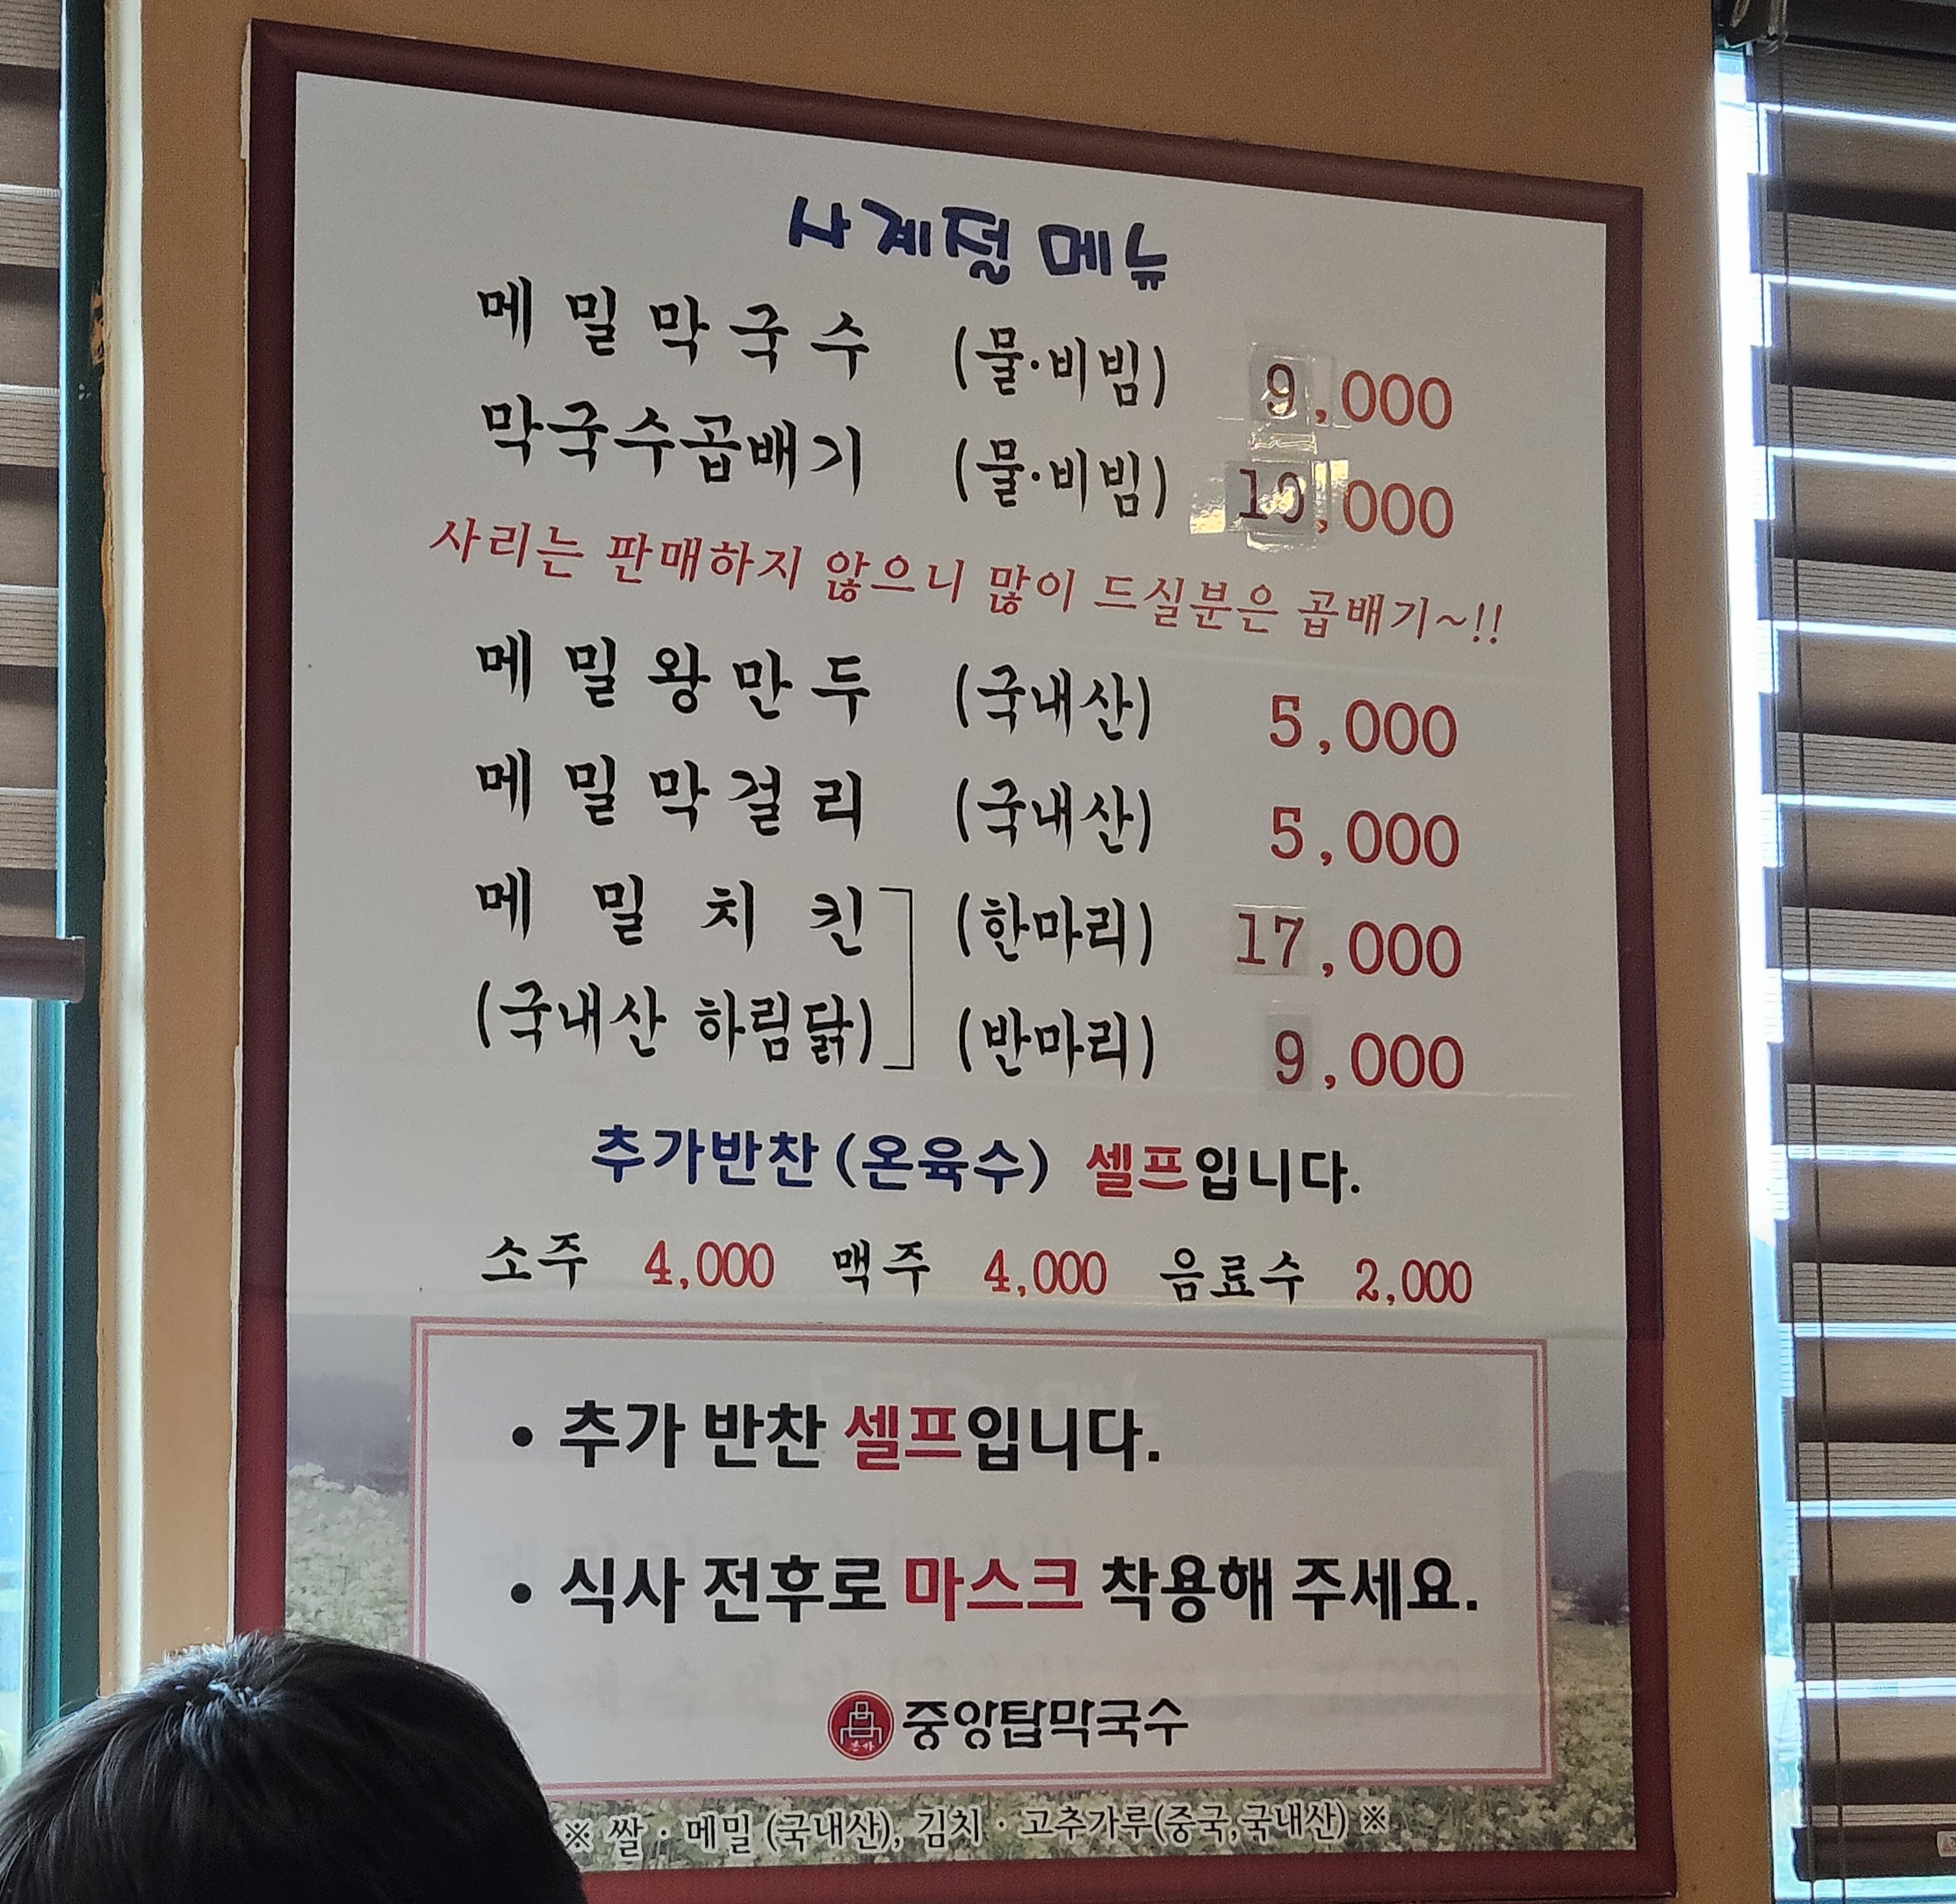 사계절 메뉴
메밀막국수 (물·비빔) 9,000
막국수곱배기 (물·비빔) 10,000
사리는 판매하지 않으니 많이 드실분은 곱배기~!!
메밀왕만두 (국내산) 5,000
메밀막걸리 (국내산) 5,000
메밀치킨 (한마리) 17,000
(국내산 하림닭) (반마리) 9,000
추가반찬(온육수) 셀프입니다.
소주 4,000 맥주 4,000 음료수 2,000
• 추가 반찬 셀프입니다.
• 식사 전후로 마스크 착용해 주세요.
중앙탑막국수
※ 쌀·메밀 (국내산), 김치·고추가루(중국,국내산) ※